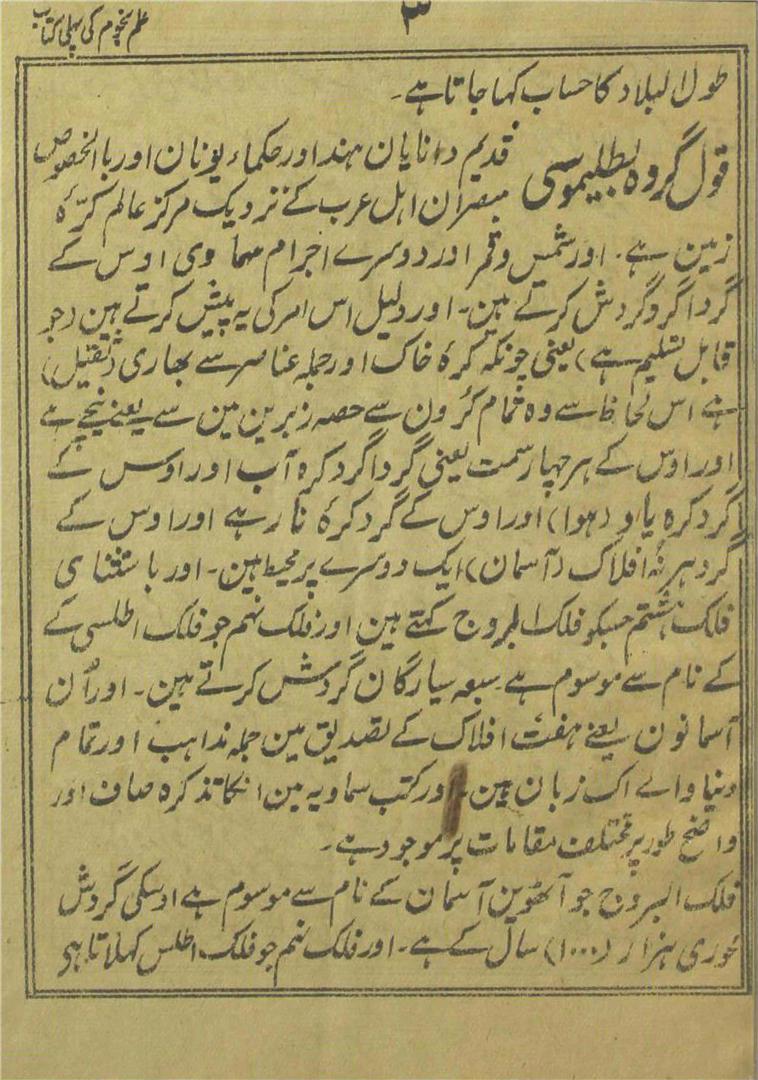 ۳
علم نجوم کی پہلی کتاب
طول البلاد کا حساب کہا جاتا ہے۔
قول گروہ بطلیموسی قدیم دانایان ہند اور حکماء یونان اور باالخصوص
مبصران اہل عرب کے نزدیک مرکز عالم کرّہ
زمین ہے۔ اور شمس و قمر اور دوسرے اجرام سماوی اوس کے
گردا گرد گردش کرتے ہین۔ اور دلیل اس امر کی یہ پیش کرتے ہین (جو
قابل تسلیم ہے) یعنی چونکہ کرۂ خاک اور جملہ عناصر سے بھاری (ثقیل)
ہے اس لحاظ سے وہ تمام کرّون سے حصہ زیرین مین سے یعنے نیچے ہے
اور اوس کے ہر چہار سمت یعنی گردا گرد کرہ آب اور اوس کے
گرد کرہ یاو (ہوا) اور اوس کے گرد کرۂ نار ہے اور اوس کے
گرد ہر نُہ افلاک (آسمان) ایک دوسرے پر محیط ہین۔ اور باستثنای
فلک ہشتم جسکو فلک البروج کہتے ہین اور فلک نہم جو فلک اطلسی کے
کے نام سے موسوم ہے۔ سبعہ سیارگان گردش کرتے ہین۔ اور اُن
آسمانون یعنے ہفت افلاک کے تصدیق مین جملہ مذاہب اور تمام
دنیا والے اک زبان ہین۔ اور کتب سماویہ مین انکا تذکرہ صاف اور
واضح طور پر مختلف مقامات پر موجود ہے۔
فلک البروج جو آٹھوین آسمان کے نام سے موسوم ہے اوسکی گردش
محوری ہزار (۱۰۰۰) سال کے ہے۔ اور فلک نہم جو فلک اطلس کہلاتا ہی